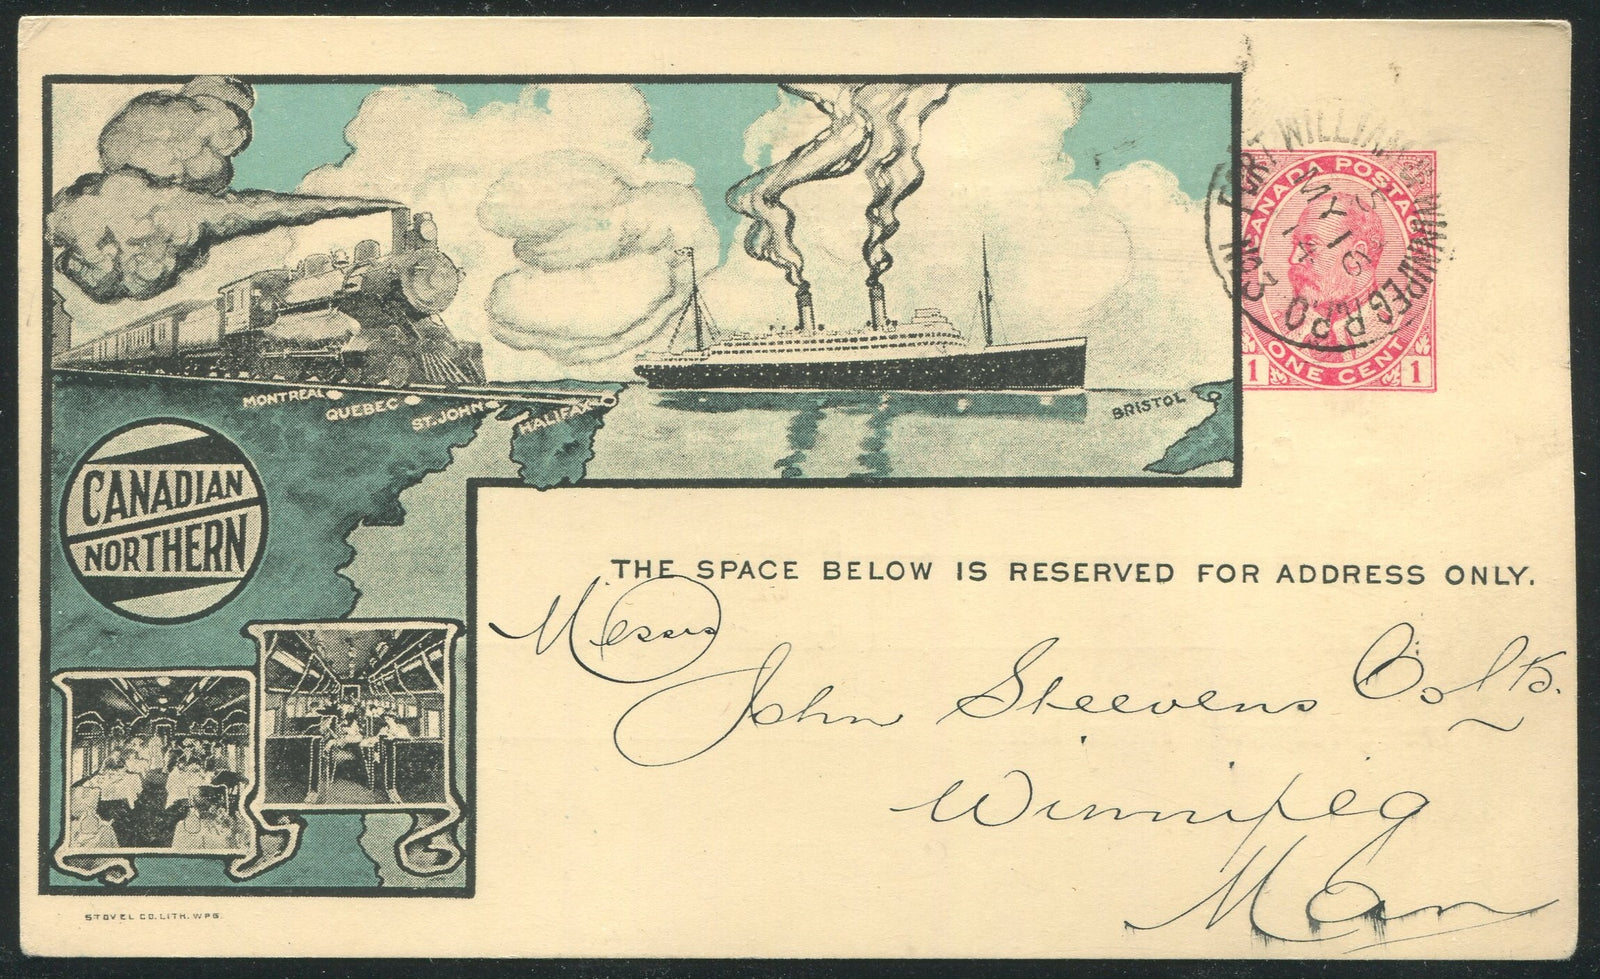 FORT WILLIAM & WINNIPEG R.P.O.
MY 14
CANADA POSTAGE
1 ONE CENT 1
MONTREAL
QUEBEC
ST. JOHN
HALIFAX
BRISTOL
CANADIAN
NORTHERN
THE SPACE BELOW IS RESERVED FOR ADDRESS ONLY.
Messrs
John Steevens Co Ltd.
Winnipeg
Man
STOVEL CO. LITH. WPG.